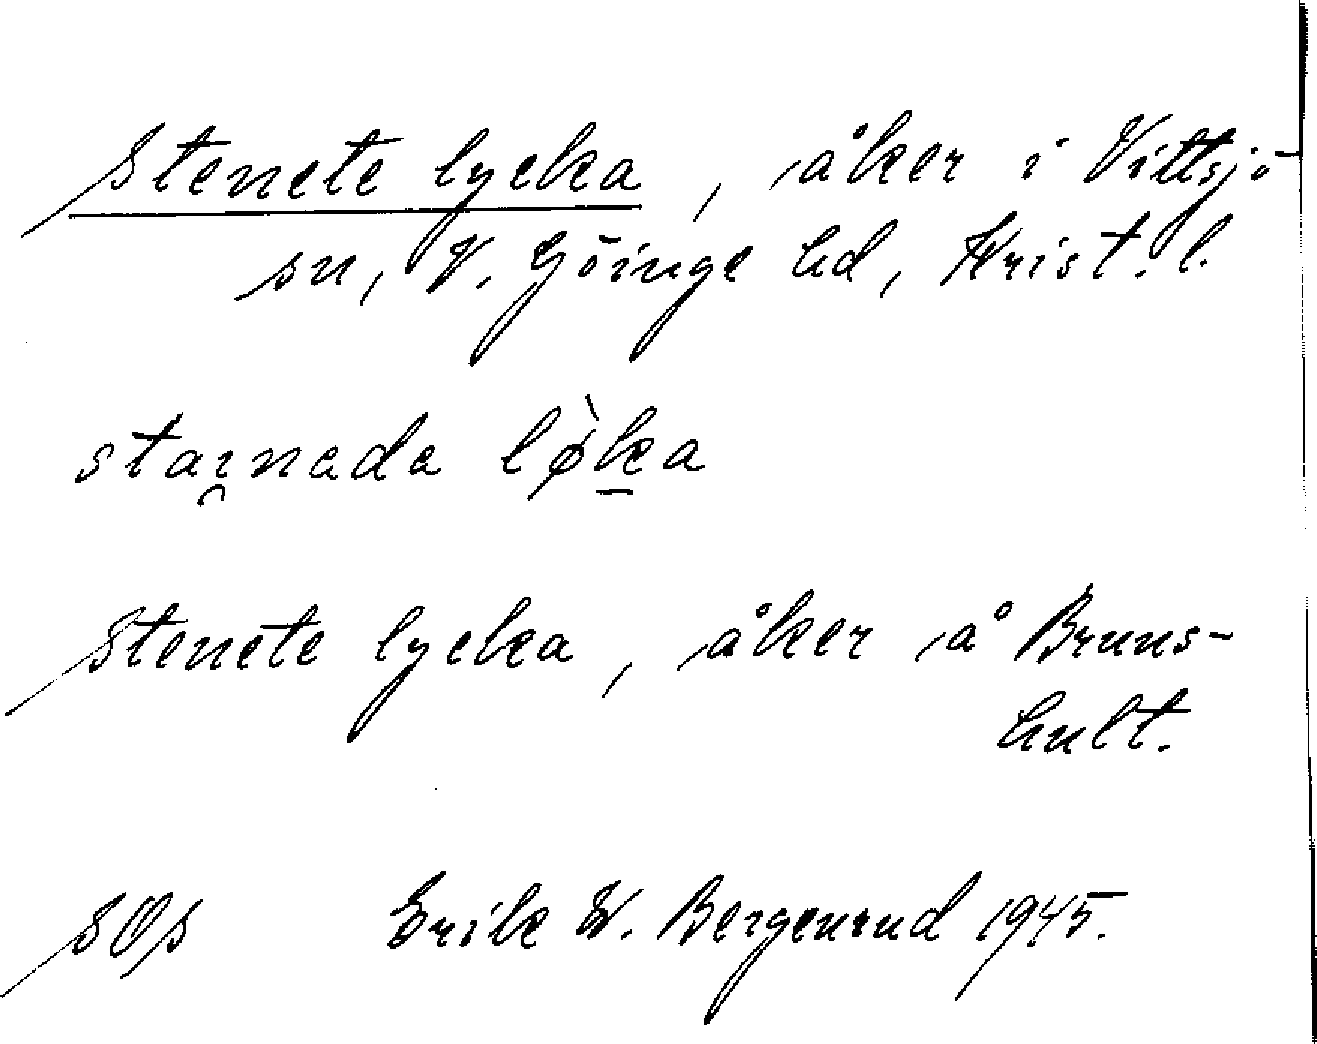 Stenete lycka, åker i Vittsjö
sn, V. Göinge hd, Krist. l.
staɪ̯nada lø̀k̲a
Stenete lycka, åker å Bruns-
hult.
SOs Erik W. Bergenrud 1945.